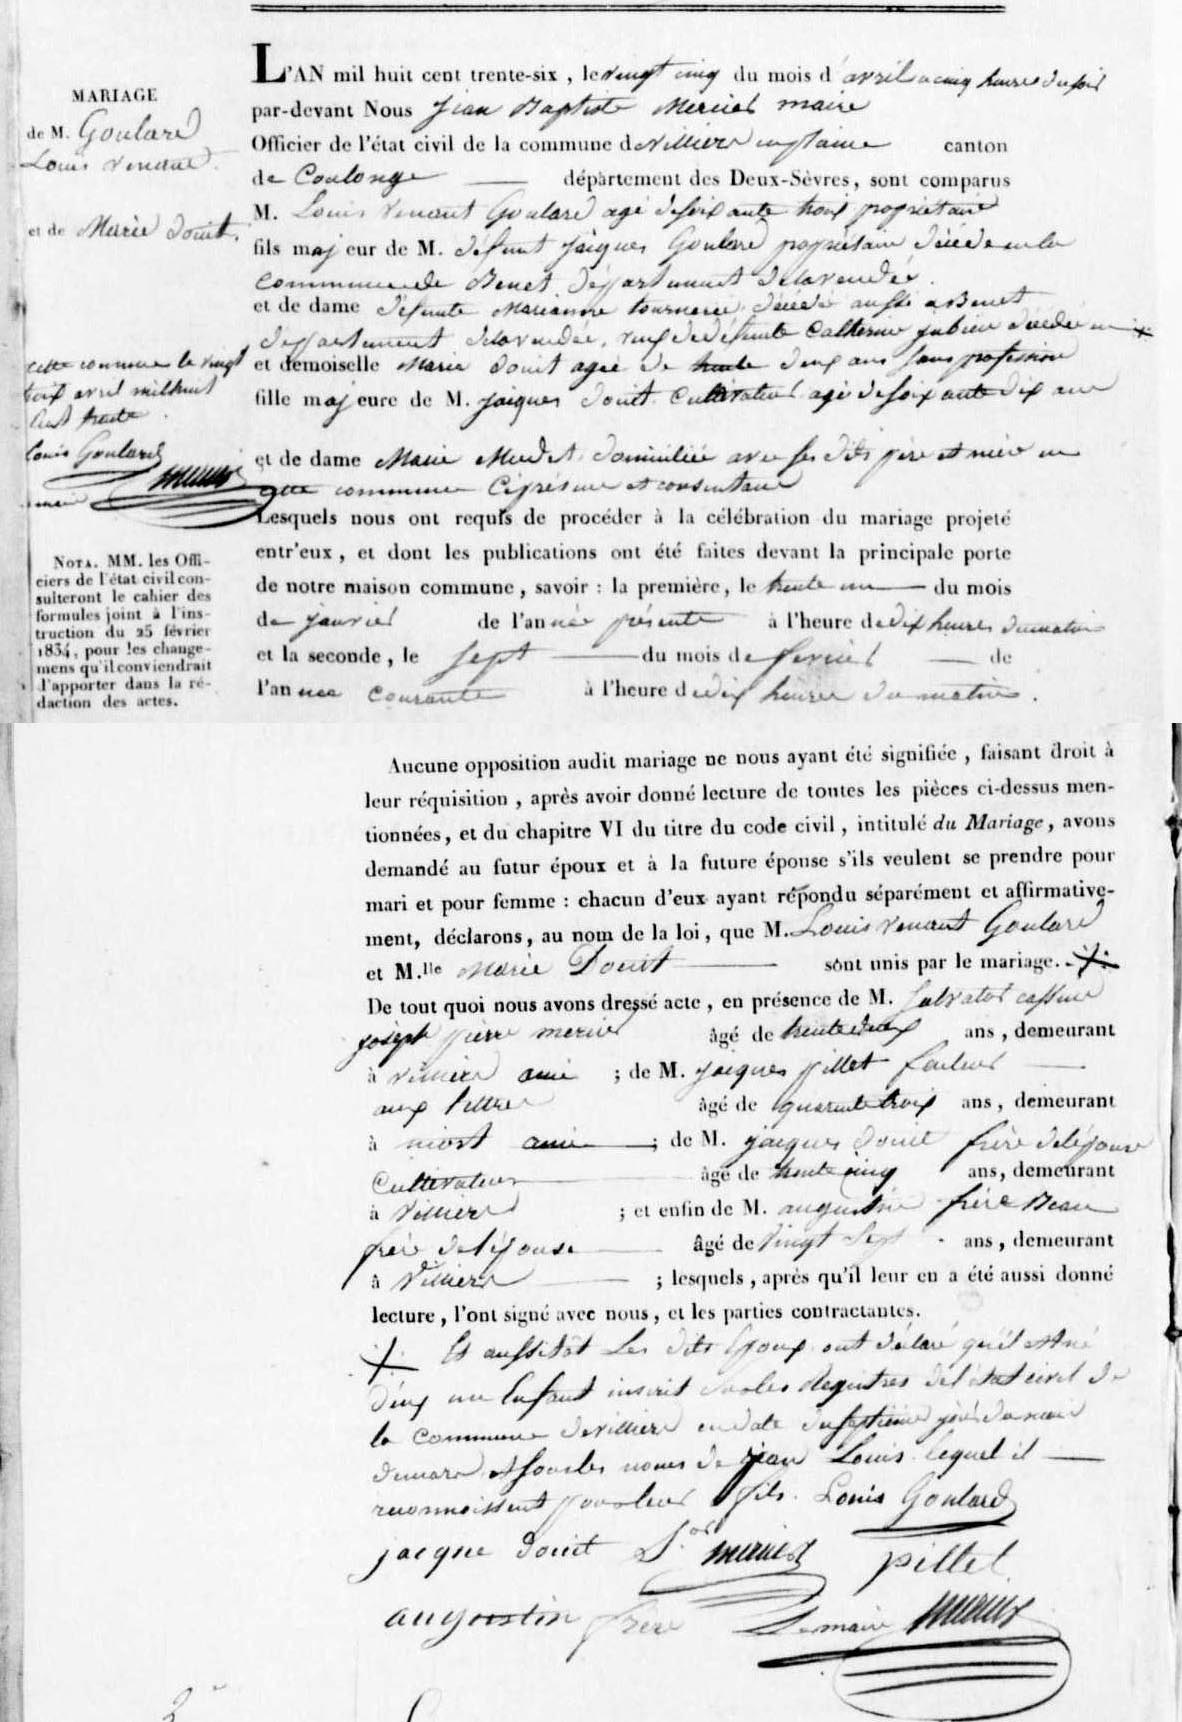 MARIAGE
de M. Goulard
Louis venant.
et de Marie douit.
cette commune le vingt
trois avril mil huit
cent trente.
Louis Goulard
maire Mercier
NOTA. MM. les Offi-
ciers de l'état civil con-
sulteront le cahier des
formules joint à l'ins-
truction du 25 février
1834, pour les change-
mens qu'il conviendrait
d'apporter dans la ré-
daction des actes.
L'AN mil huit cent trente-six, le vingt cinq du mois d'avril a cinq heures du soir
par-devant Nous Jean Baptiste Mercier maire
Officier de l'état civil de la commune de villiers en plaine canton
de Coulonge département des Deux-Sèvres, sont comparus
M. Louis venant Goulard agé de soixante trois propriétaire
fils majeur de M. défunt Jacques Goulard propriétaire décédé en la
commune de Benet département de la vendée.
et de dame défunte Marianne tournerie décédé aussi a Benet
département de la vendée, veuf de défunte Catherine jubien décédé en
et demoiselle Marie douit agée de trente deux ans sans profession
fille majeure de M. jacques douit Cultivateur agé de soixante dix ans
et de dame Marie domiciliée avec ses dits père et mère en
cette commune Ci présens et consentans
Lesquels nous ont requis de procéder à la célébration du mariage projeté
entr'eux, et dont les publications ont été faites devant la principale porte
de notre maison commune, savoir : la première, le trente un du mois
de janvier de l'année présente à l'heure de dix heures du matin
et la seconde, le sept du mois de fevrier de
l'année courante à l'heure de dix heures du matin.
Aucune opposition audit mariage ne nous ayant été signifiée, faisant droit à
leur réquisition, après avoir donné lecture de toutes les pièces ci-dessus men-
tionnées, et du chapitre VI du titre du code civil, intitulé du Mariage, avons
demandé au futur époux et à la future épouse s'ils veulent se prendre pour
mari et pour femme : chacun d'eux ayant répondu séparément et affirmative-
ment, déclarons, au nom de la loi, que M. Louis venant Goulard
et M.lle Marie Douit sont unis par le mariage.
De tout quoi nous avons dressé acte, en présence de M. Salvator
joseph pierre mercier âgé de trente deux ans, demeurant
à villiers ami ; de M. jacques pillet facteur
aux lettres âgé de quarante trois ans, demeurant
à niort ami ; de M. jacques douit frère de lépouse
Cultivateur âgé de trente cinq ans, demeurant
à Villiers ; et enfin de M. augustin frère Beau
frère de lépouse âgé de vingt sept ans, demeurant
à Villiers ; lesquels, après qu'il leur en a été aussi donné
lecture, l'ont signé avec nous, et les parties contractantes.
Et aussitôt Les dits Epoux ont déclaré qu'il est né
d'eux un Enfant inscrit sur les Registres de l'état civil de
la commune de villiers en date du septième jour du mois
de mars et sous les noms de jean Louis lequel il
reconnoissent pour leur fils. Louis Goulard
jacque douit S.or mercier pillet
augoustin frere Le maire Mercier